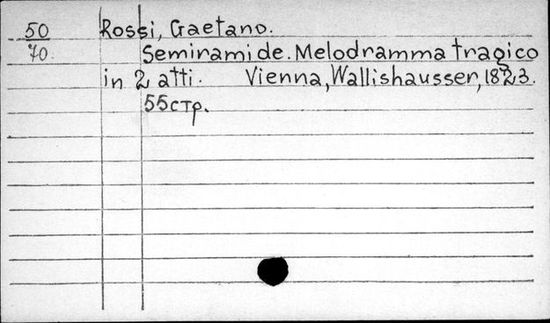 50 Rossi, Gaetano.
70. Semiramide. Melodramma tragico
in 2 atti. Vienna, Wallishausser, 1823.
55 стр.